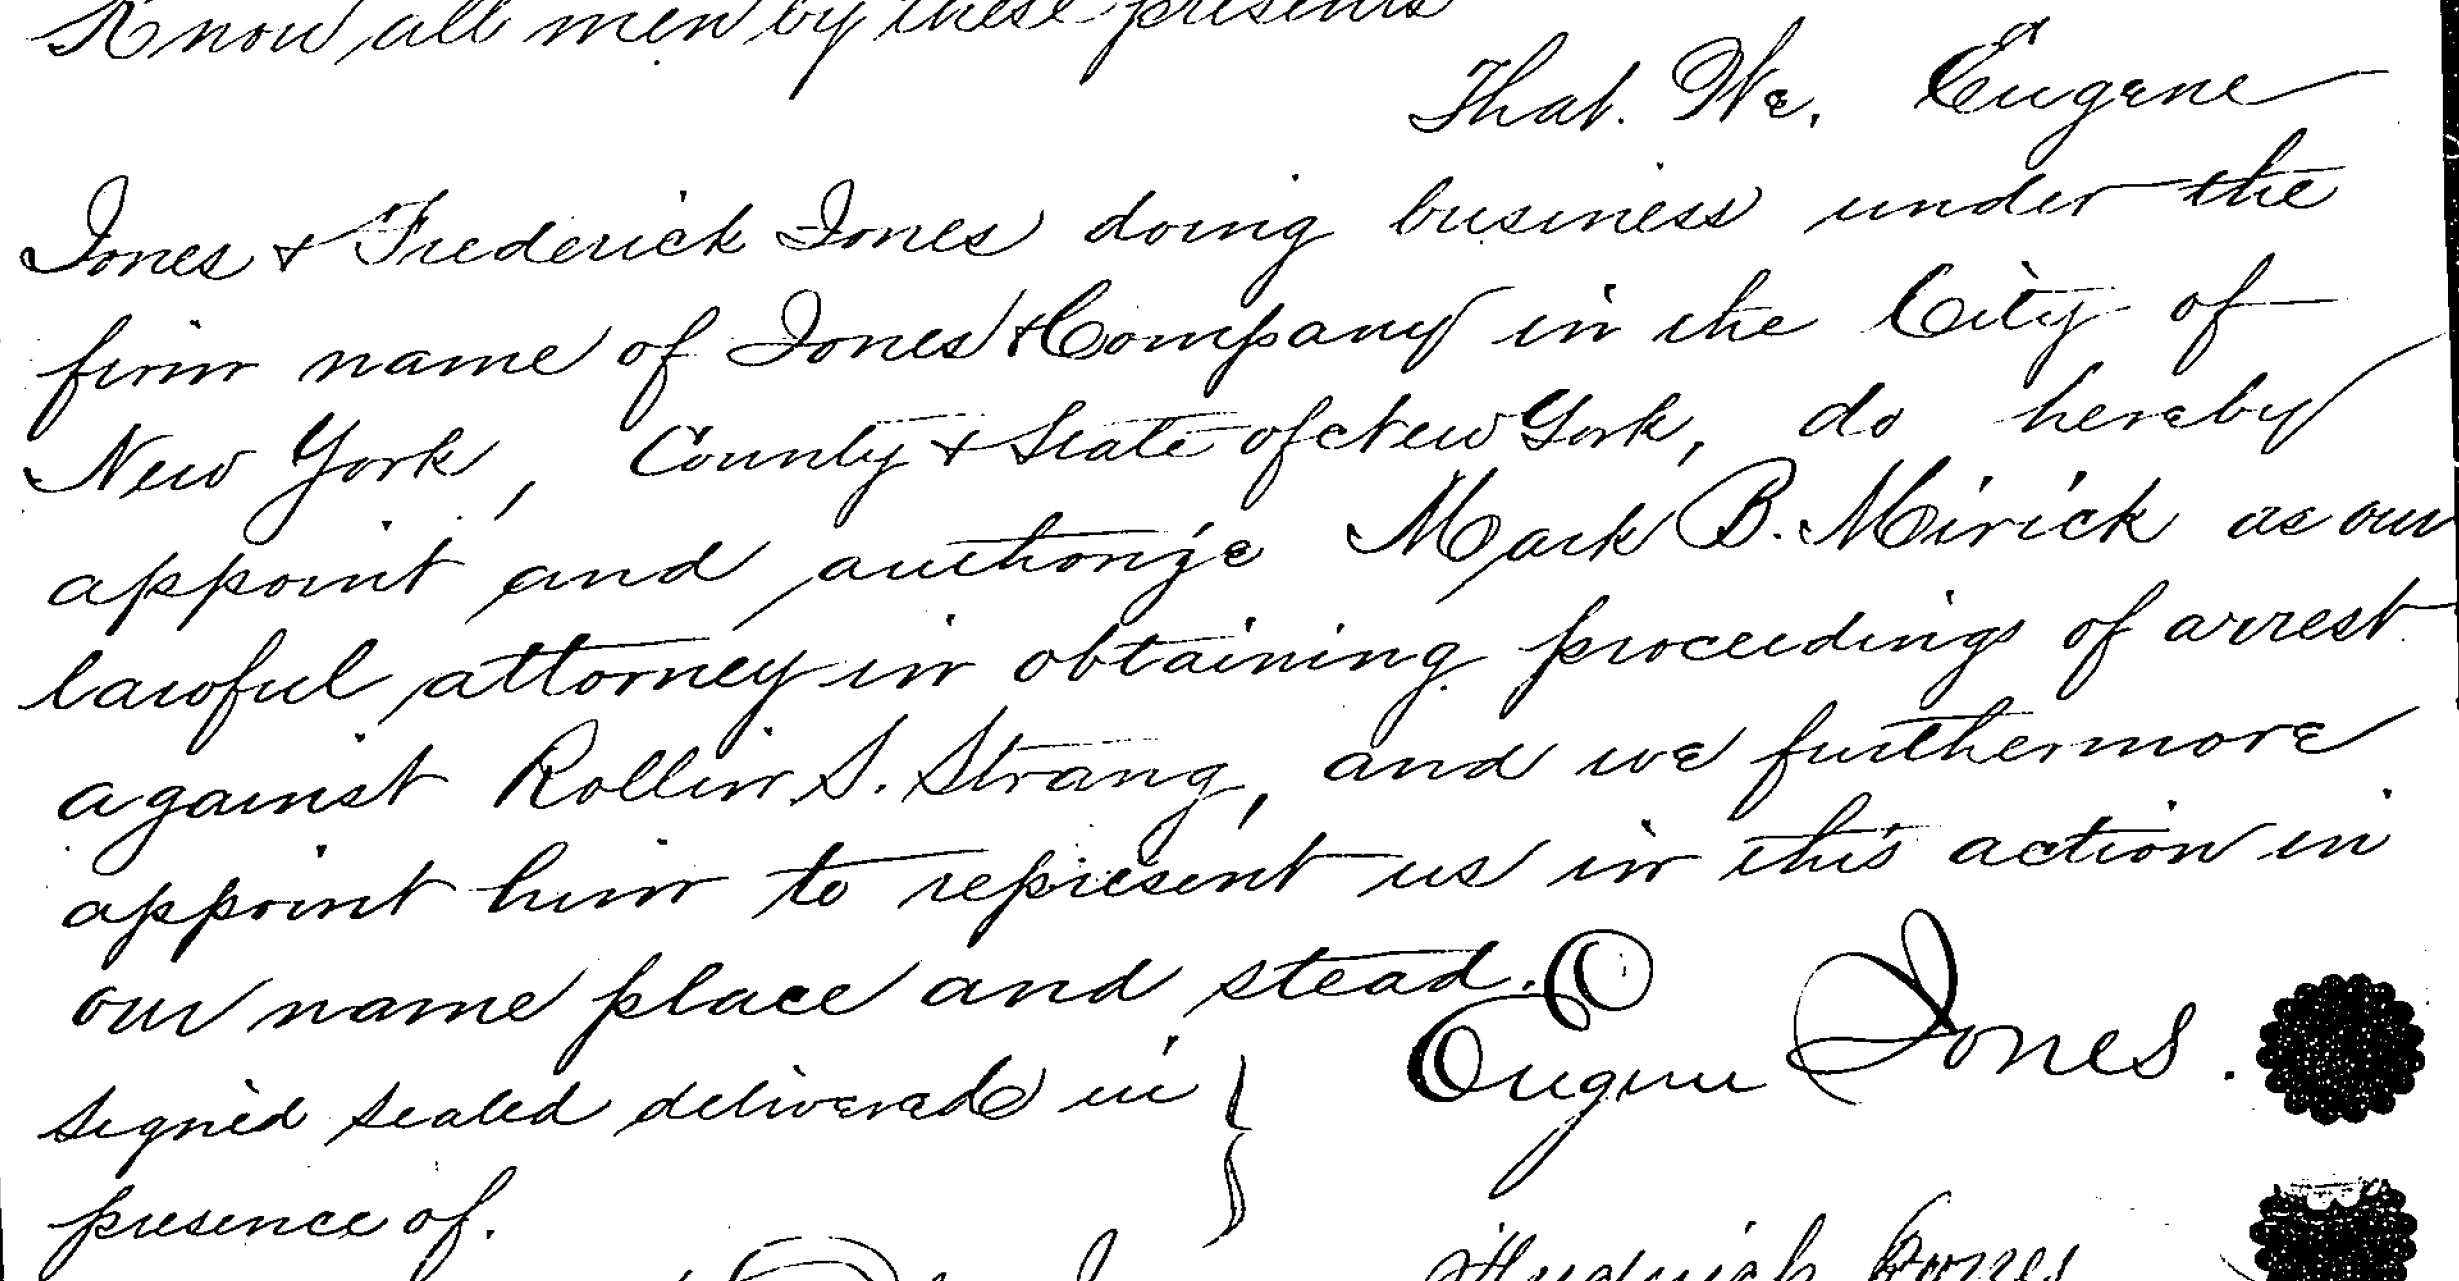 Know all men by these presents
That. We, Eugene
Jones & Frederick Jones doing business under the
firm name of Jones & Company in the City of
New York, County & State of New York, do hereby
appoint and authorize Mark B. Mirick as our
lawful attorney in obtaining proceedings of arrest
against Rollin S. Strang, and we furthermore
appoint him to represent us in this action in
our name place and stead.
Eugene Jones.
signed sealed delivered in
presence of.
Frederick Jones